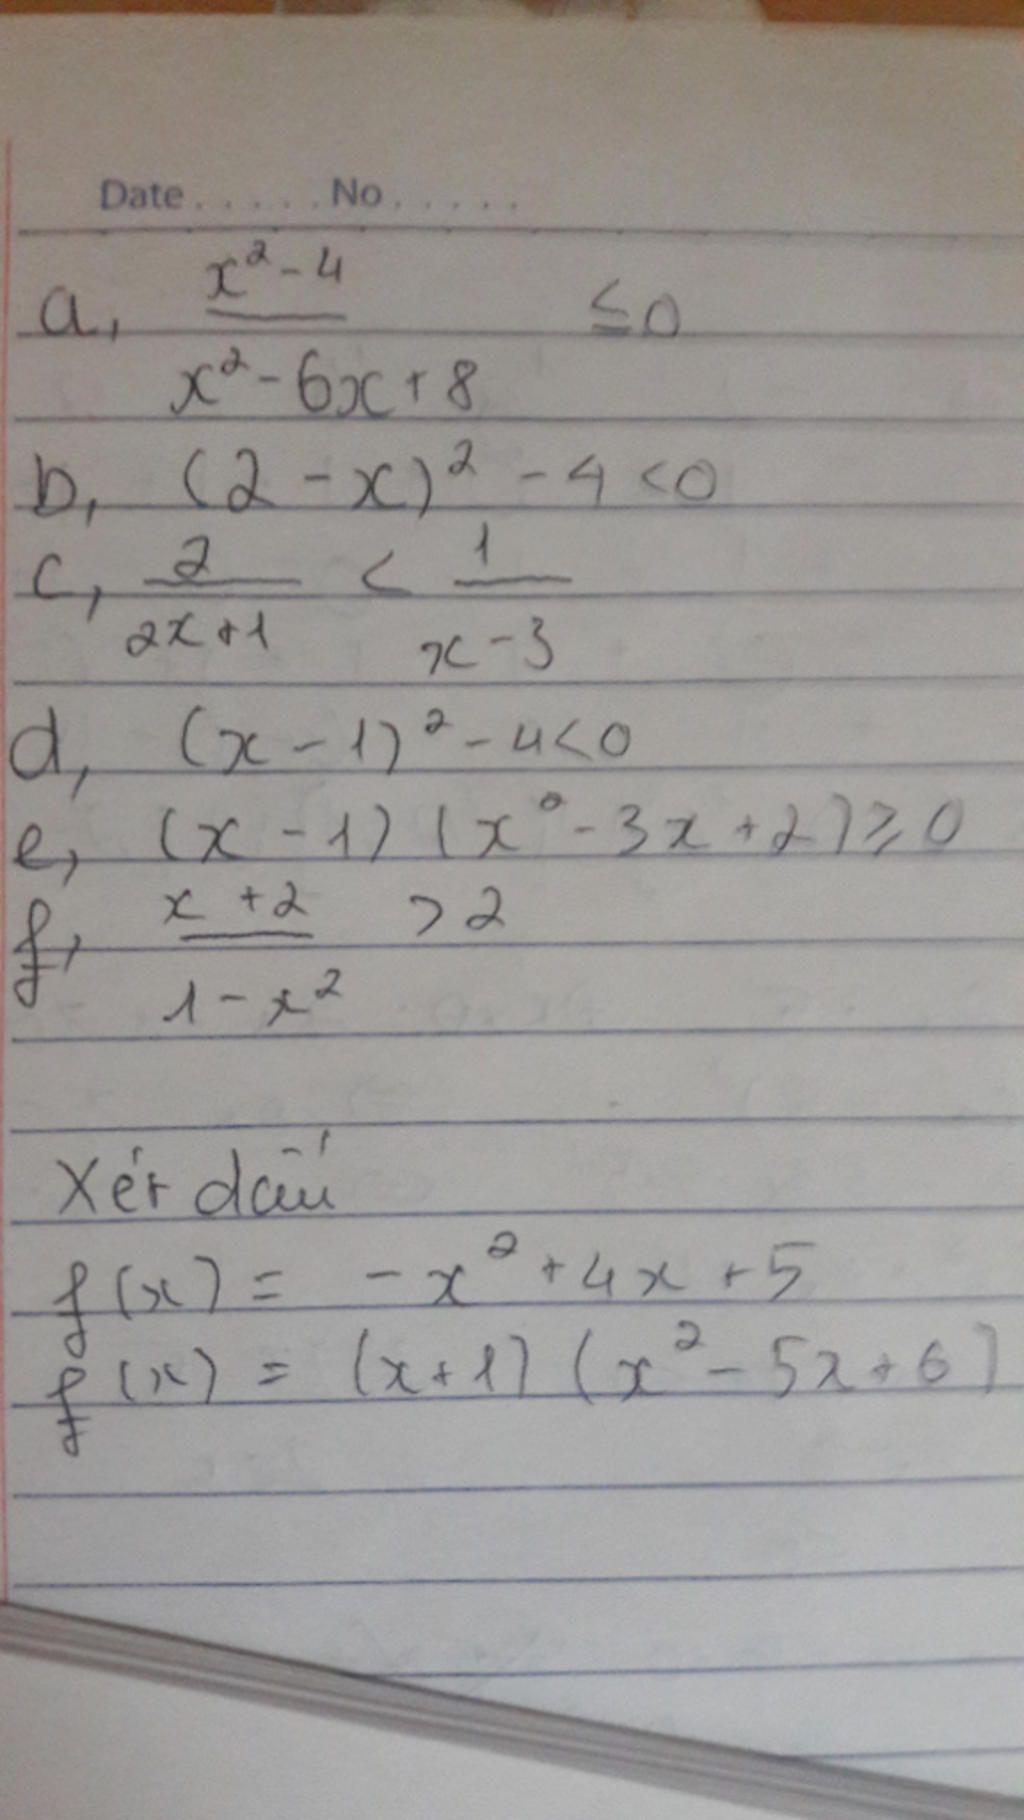 Date . . . . . No . . . . .
a, x² - 4 / x² - 6x + 8 ≤ 0
b, (2 - x)² - 4 < 0
c, 2 / 2x + 1 < 1 / x - 3
d, (x - 1)² - 4 < 0
e, (x - 1) (x² - 3x + 2) ≥ 0
f, x + 2 / 1 - x² > 2
Xét dấu
f(x) = - x² + 4x + 5
f(x) = (x + 1) (x² - 5x + 6)